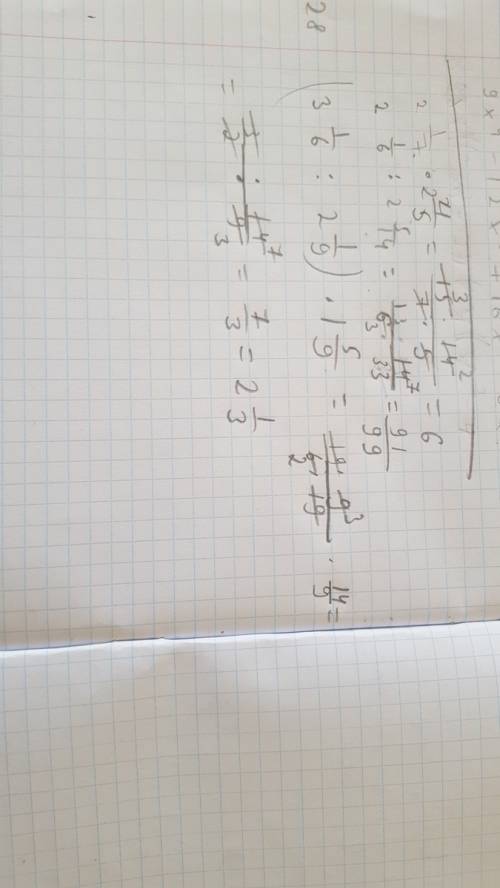 2 1/7 · 2 4/5 = 15³ · 14² / 7 · 5 = 6
2 1/6 : 2 5/14 = 13 · 14⁷ / 6₃ · 33 = 91/99
28
(3 1/6 : 2 1/9) · 1 5/9 = 19 · 9³ / 6₂ · 19 · 14/9 =
= 3/2 · 14⁷/9₃ = 7/3 = 2 1/3